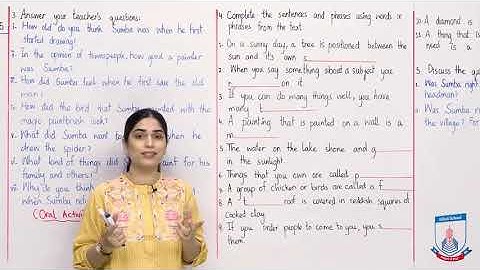 3. Answer your teacher's questions:
i. How old do you think Sumba was when he first
started drawing?
ii. In the opinion of townspeople, how good a painter
was Sumba?
How did Sumba feel when he first saw the old
man?
How did the bird that Sumba painted with the
magic paintbrush look?
v. What did Sumba want to when he
drew the spider?
vi. What kind of things did Sumba paint for his
family and others?
vii. Why do you think
when Sumba
(Oral Activ
4. Complete the sentences and phrases using words or
phrases from the text.
1. On a sunny day, a tree is positioned between the
sun and its own s
2. When you say something about a subject you
on it.
3. If you can do many things well, you have
many t
4. A painting that is painted on a wall is a
m
5. The water on the lake shone and g
in the sunlight.
6. Things that you own are called p
7. A group of chicken or birds are called a f
8. A t roof is covered in reddish squares of
cooked clay.
9. If you order people to come to you, you s
them.
10. A diamond is
11. A thing that is
need is a
5. Discuss the
Was Sumba right
headman?
Was Sumba
the village? For